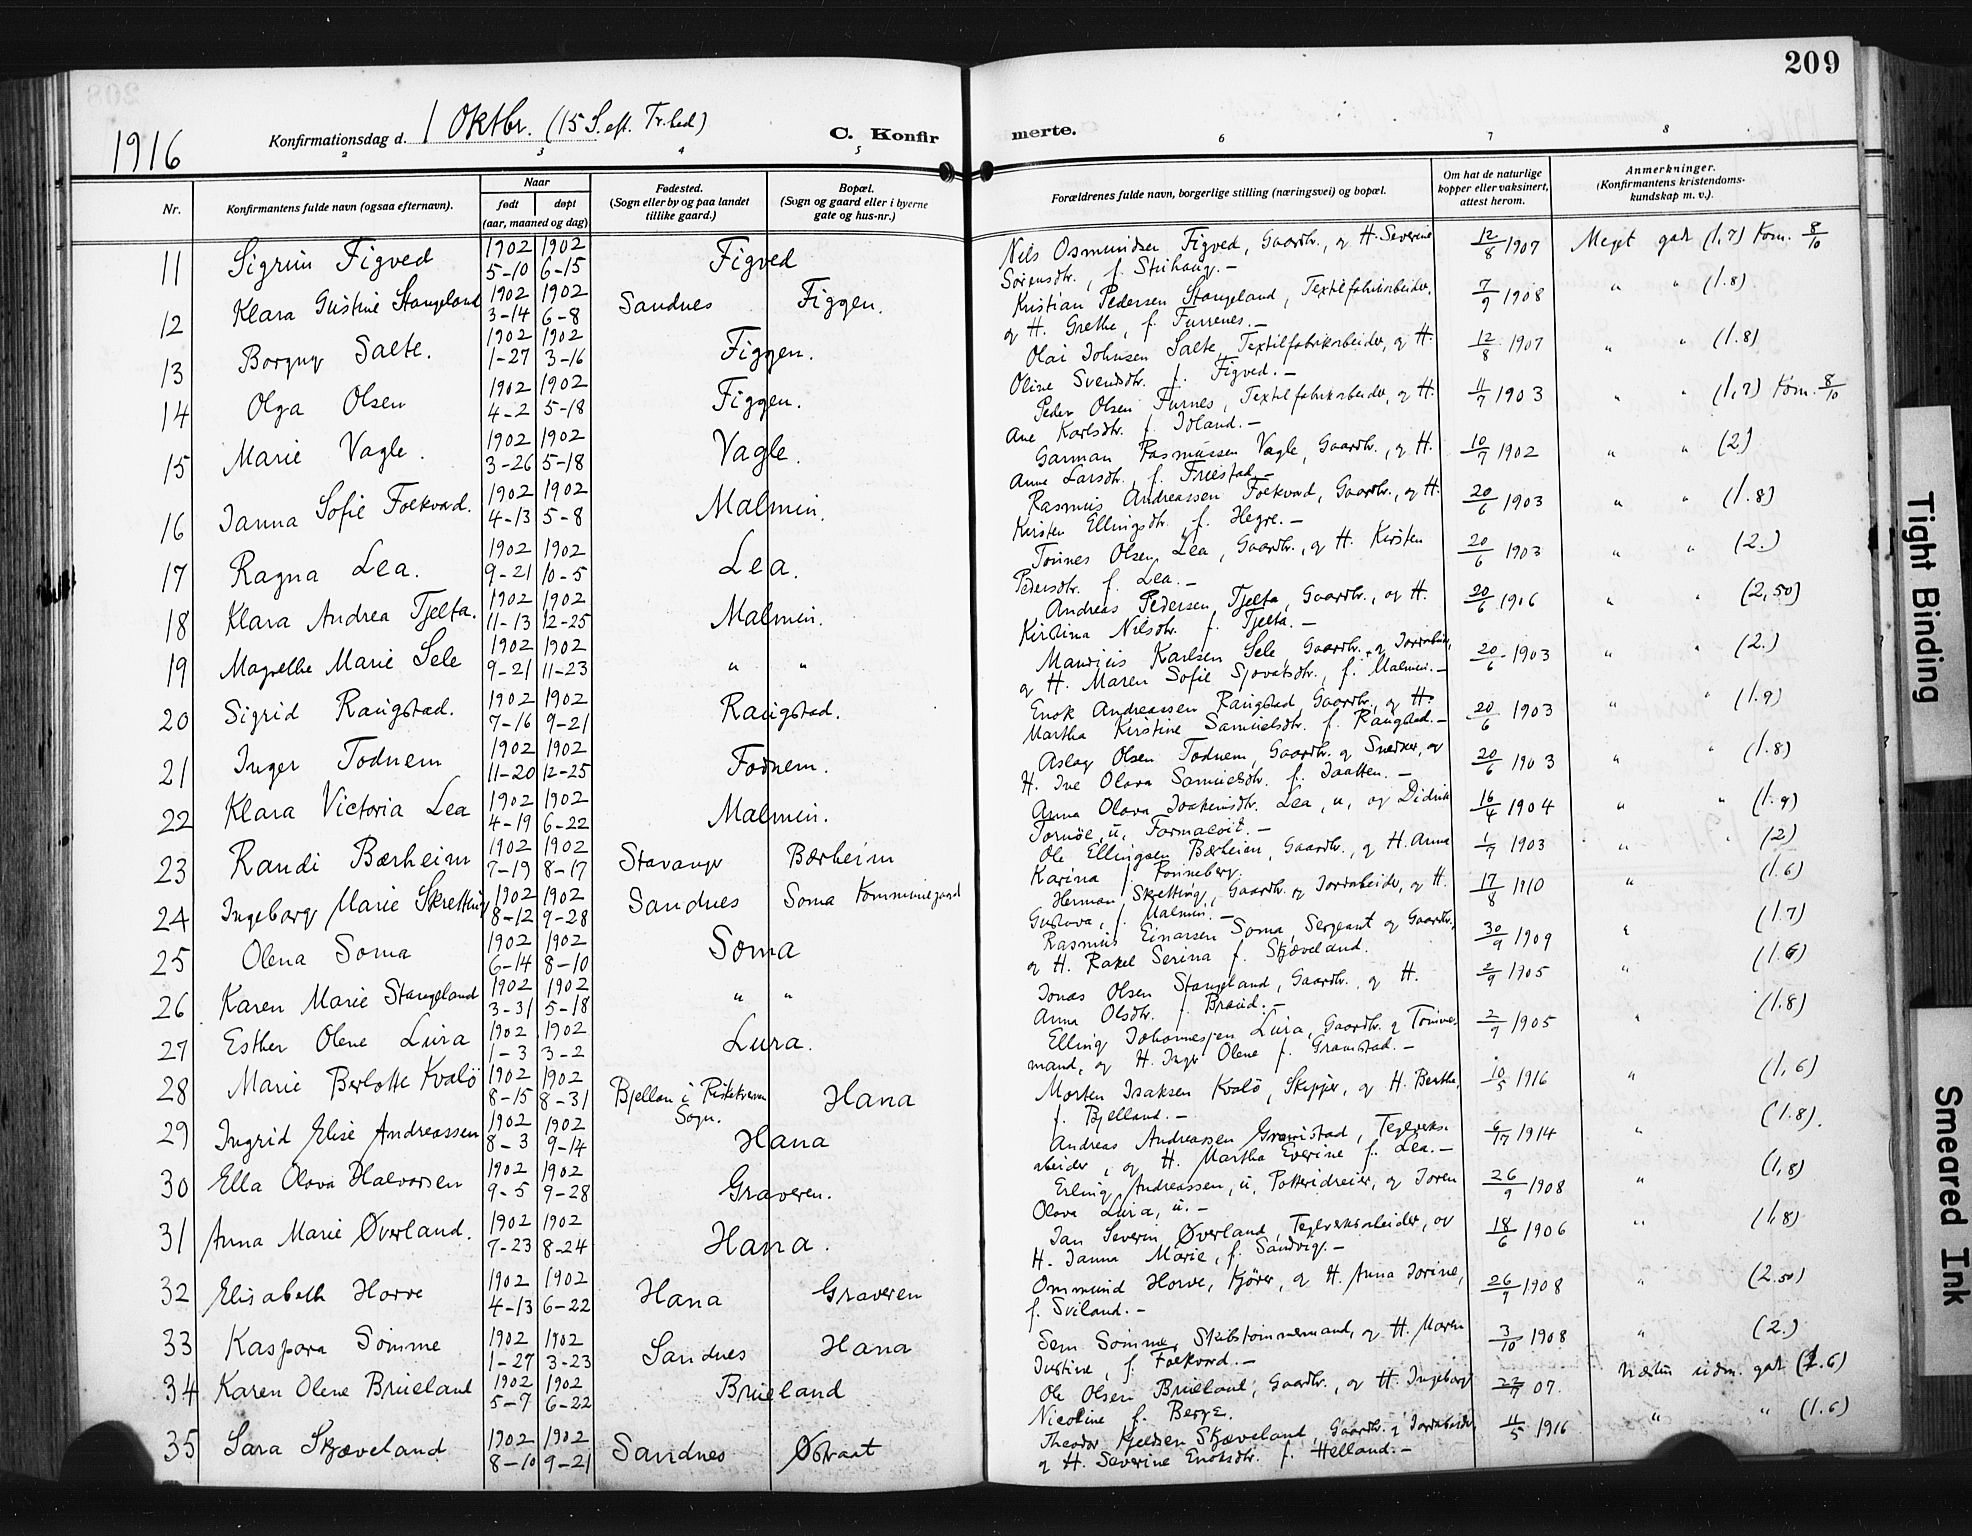 209
1916
Konfirmationsdag d. 1 Oktbr. (15 S. eft. Tr.hed)
C. Konfirmerte.
2 3 4 5 6 7 8
Nr.
Konfirmantens fulde navn (ogsaa efternavn).
Naar
født døpt
(aar, maaned og dag)
Fødested.
(Sogn eller by og paa landet
tillike gaard.)
Bopæl.
(Sogn og gaard eller i byerne
gate og hus-nr.)
Forældrenes fulde navn, borgerlige stilling (næringsvei) og bopæl.
Om hat de naturlige
kopper eller vaksinert,
attest herom.
Anmerkninger.
(Konfirmantens kristendoms-
kundskap m. v.).
11 Sigrun Figved 1902 5-10 1902 6-15 Figved Nels Osmundsen Figved, Gaardbr., og H. Severine 12/8 1907 Meget godt (1,7) Kom. 8/10
Sörensdtr., f. Stuhaug.-
12 Klara Gustine Stangeland 1902 3-14 1902 6-8 Sandnes Figgen. Kristian Pedersen Stangeland, Textilfabrikarbeider, 7/9 1908 " " (1.8)
og H. Grethe, f. Furrenes.-
13 Borgny Salte. 1902 1-27 1902 3-16 Figgen. Olai Johnsen Salte, Textilfabrikarbeider, og H. 12/8 1907 " " (1.8)
Oline Svendsdtr. f. Figved.-
14 Olga Olsen 1902 4-2 1902 5-18 Figgen. Peder Olsen Furnes, Textilfabrikarbeider, og H. 11/7 1903 " " (1,7) Kom. 8/10
Ane Karlsdtr. f. Joland.-
15 Marie Vagle. 1902 3-26 1902 5-18 Vagle. Garman Rasmussen Vagle, Gaardbr., og H. 10/7 1902 " " (2)
Anne Larsdtr., f. Friestad.-
16 Janna Sofie Foekvad. 1902 4-13 1902 5-8 Malmin. Rasmus Andreassen Foekvad, Gaardbr., og H. 20/6 1903 " " (1.8)
Kirsten Ellingsdtr., f. Hegre.-
17 Ragna Lea. 1902 9-21 1902 10-5 Lea. Tönnes Olsen Lea, Gaardbr., og H. Kirsten 20/6 1903 " " (2.)
Pedersdtr. f. Lea.-
18 Klara Andrea Tjelta. 1902 11-13 1902 12-25 Malmin. Andreas Pedersen Tjelta, Gaardbr., og H. 20/6 1906 " " (2,50)
Kirstina Nilsdtr. f. Tjelta.-
19 Magrethe Marie Sele 1902 9-21 1902 11-23 " " Mauritius Karlsen Sele, Gaardbr. og Jordarb., 20/6 1903 " " (2.)
og H. Maren Sofie Sjovatsdtr., f. Malmin.-
20 Sigrid Raugstad. 1902 7-16 1902 9-21 Raugstad. Enok Andreassen Raugstad, Gaardbr., og H. 20/6 1903 " " (1.9)
Martha Kirstine Samuelsdtr. f. Raugstad.-
21 Inger Todnem 1902 11-20 1902 12-25 Todnem. Aslag Olsen Todnem, Gaardbr. og Snedker, og 20/6 1903 " " (1.8)
H. Ine Olava Samuelsdtr. f. Jaatten.-
22 Klara Victoria Lea 1902 4-19 1902 6-22 Malmin. Anna Olava Joakimsdtr. Lea, u, og Didrik 16/4 1904 " " (1.9)
23 Randi Bærheim 1902 7-19 1902 8-17 Stavanger Bærheim Ole Ellingsen Bærheim, Gaardbr., og H. Anna 1/7 1903 " " (2)
Karina f. Rönneberg.
24 Ingeborg Marie Skretting 1902 8-12 1902 9-28 Sandnes Soma Kommunegaard Herman Skretting, Gaardbr. og Jordarbeider, og H. 17/8 1910 " (1.6)
Gustava, f. Malmin.-
25 Olena Soma 1902 6-14 1902 8-10 Soma Rasmus Einarsen Soma, Sergeant og Gaardbr., 30/9 1909 " (1.7)
og H. Rakel Serina f. Skjæveland.
26 Karen Marie Stangeland 1902 3-31 1902 5-18 " " Jonas Olsen Stangeland, Gaardbr., og H. 2/9 1905 " (1.6)
Anna Olsdtr. f. Braud.-
27 Esther Olene Lura 1902 1-3 1902 3-2 Lura. Elling Johannesjen Lura, Gaardbr. og Tömmermand, 2/7 1905 " (1.8)
og H. Inger Olene f. Gramstad.-
28 Marie Berlotte Kvalö 1902 8-15 1902 8-31 Bjelland i Sogn. Hana Morten Isaksen Kvalö, Skipper, og H. Berthe, 10/5 1916 " (1,6)
f. Bjelland.-
29 Ingrid Elise Andreassen 1902 8-3 1902 9-14 Hana Andreas Andreassen Gramstad, Teglverks- 6/17 1914 " (1.8).
arbeider, og H. Martha Everine f. Lea.-
30 Ella Olava Halvorsen 1902 9-5 1902 9-28 Graveren. Erling Andreassen, u, Potteridreier, og Joren 26/9 1908 " (1,8)
Olava Lura, u.-
31 Anna Marie Øverland. 1902 7-23 1902 8-24 Hana. Jan Severin Øverland, Teglverksarbeider, og 18/6 1906 " (1,8)
H. Janna Marie, f. Sandvig.-
32 Elisabeth Horve 1902 4-13 1902 6-22 Hana Graveren Ommund Horve, Kjörer, og H. Anna Jorine, 26/9 1908 " (2.50)
f. Sviland.-
33 Kaspara Sömme 1902 1-27 1902 3-23 Sandnes Hana Sem Sömme, Skibstömmermand, og H. Maren 3/10 1908 " (2.)
Justine, f. Foekvard.-
34 Karen Olene Brueland 1902 5-7 1902 6-22 Brueland Ole Olsen Brueland, Gaardbr., og H. Ingeborg 22/7 07. Næsten udm. godt (1.6)
Nicoline f. Berge.
35 Sara Skjæveland 1902 8-10 1902 9-21 Sandnes Østraat Theodor Kjeldsen Skjæveland, Gaardbr. og Jordarbeider, 11/5 1916 " " (1.6)
og H. Severine Enoksdtr. f. Helland.-
Tight Binding
Smeared Ink